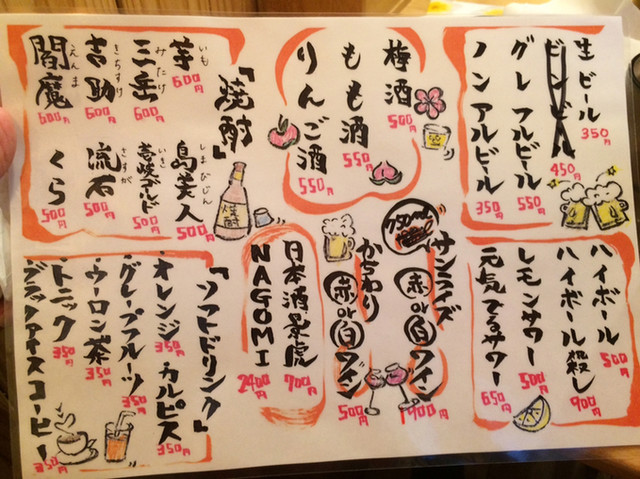 生ビール 350円
ビンビール 450円
グレフルビール 550円
ノンアルビール 350円
梅酒 500円
もも酒 550円
りんご酒 550円
「焼酎」
芋 600円
いも
三岳 600円
みたけ
吉助 600円
きちすけ
閻魔 600円
えんま
島美人 500円
しまびじん
壱岐ゴールド 500円
いき
流石 500円
さすが
くら 500円
ハイボール 500円
ハイボール殺し 900円
レモンサワー 500円
元気でるサワー 650円
サンライズ
750ml
赤or白ワイン 1900円
かちわり
赤or白ワイン 500円
日本酒景虎 700円
NAGOMI 2400円
『ソフトドリンク』
オレンジ 350円
カルピス 350円
グレープフルーツ 350円
ウーロン茶 350円
トニック 350円
ブラックアイスコーヒー 350円
焼酎